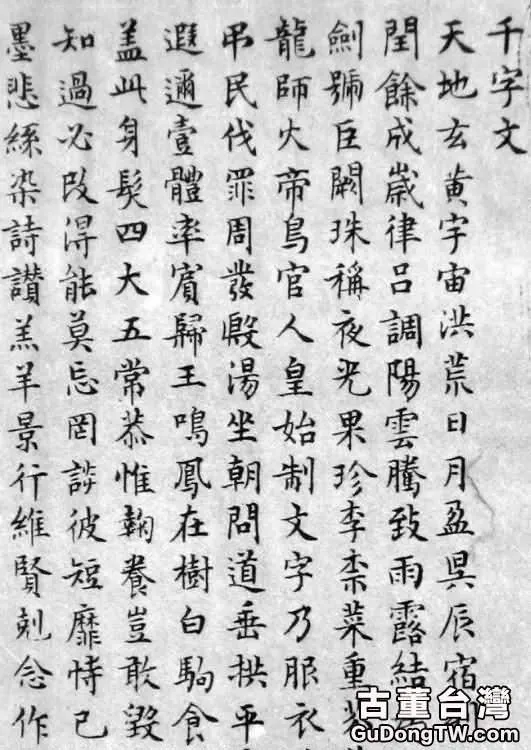 千字文
天地玄黄宇宙洪荒日月盈昃辰宿
閏餘成歲律呂調陽雲騰致雨露結
劍號巨闕珠稱夜光果珍李柰菜重
龍師火帝鳥官人皇始制文字乃服衣
弔民伐罪周發殷湯坐朝問道垂拱平
遐邇壹體率賓歸王鳴鳳在樹白駒食
盖此身髮四大五常恭惟鞠養豈敢毀
知過必改得能莫忘罔談彼短靡恃己
墨悲絲染詩讃羔羊景行維賢剋念作
古董台灣
GuDongTW.com